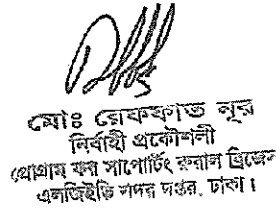 মোঃ রেফফাত নূর
নির্বাহী প্রকৌশলী
প্রোগ্রাম ফর সাপোর্টিং রুরাল ব্রিজেস
এলজিইডি সদর দপ্তর, ঢাকা।